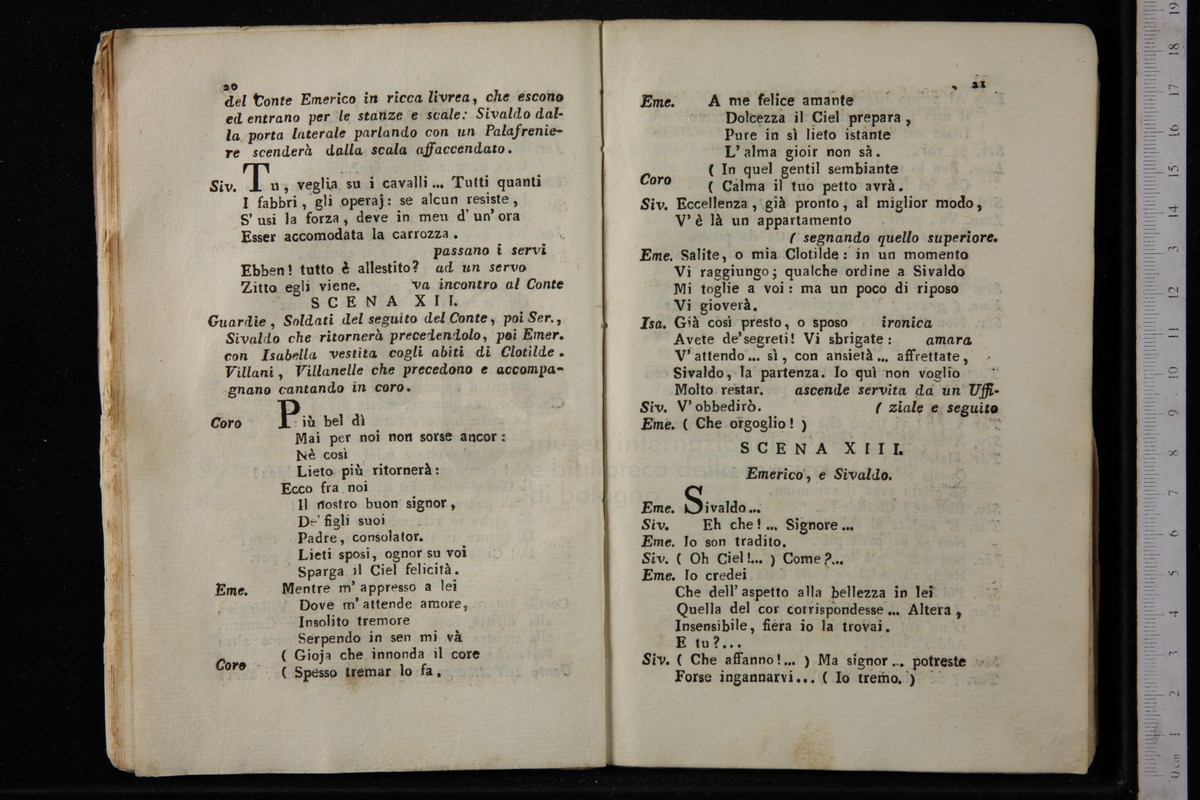 20
del Conte Emerico in ricca livrea, che escono
ed entrano per le stanze e scale: Sivaldo dal-
la porta laterale parlando con un Palafrenie-
re scenderà dalla scala affaccendato.
Siv. Tu, veglia su i cavalli... Tutti quanti
I fabbri, gli operaj: se alcun resiste,
S' usi la forza, deve in men d' un' ora
Esser accomodata la carrozza.
passano i servi
Ebben! tutto è allestito? ad un servo
Zitto egli viene. va incontro al Conte
SCENA XII.
Guardie, Soldati del seguito del Conte, poi Ser.,
Sivaldo che ritornerà precedendolo, poi Emer.
con Isabella vestita cogli abiti di Clotilde.
Villani, Villanelle che precedono e accompa-
gnano cantando in coro.
Coro Più bel dì
Mai per noi non sorse ancor:
Nè così
Lieto più ritornerà:
Ecco fra noi
Il nostro buon signor,
De' figli suoi
Padre, consolator.
Lieti sposi, ognor su voi
Sparga il Ciel felicità.
Eme. Mentre m' appresso a lei
Dove m' attende amore,
Insolito tremore
Serpendo in sen mi và
( Gioja che innonda il core
Coro
( Spesso tremar lo fa.
21
Eme. A me felice amante
Dolcezza il Ciel prepara,
Pure in sì lieto istante
L' alma gioir non sà.
( In quel gentil sembiante
Coro
( Calma il tuo petto avrà.
Siv. Eccellenza, già pronto, al miglior modo,
V' è là un appartamento
( segnando quello superiore.
Eme. Salite, o mia Clotilde: in un momento
Vi raggiungo; qualche ordine a Sivaldo
Mi toglie a voi: ma un poco di riposo
Vi gioverà.
Isa. Già così presto, o sposo ironica
Avete de' segreti! Vi sbrigate: amara
V' attendo... sì, con ansietà... affrettate,
Sivaldo, la partenza. Io quì non voglio
Molto restar. ascende servita da un Uffi-
Siv. V' obbedirò. ( ziale e seguito
Eme. ( Che orgoglio! )
SCENA XIII.
Emerico, e Sivaldo.
Eme. Sivaldo...
Siv. Eh che!... Signore...
Eme. Io son tradito.
Siv. ( Oh Ciel!... ) Come?...
Eme. Io credei
Che dell' aspetto alla bellezza in lei
Quella del cor corrispondesse... Altera,
Insensibile, fiera io la trovai.
E tu?...
Siv. ( Che affanno!... ) Ma signor... potreste
Forse ingannarvi... ( Io tremo. )